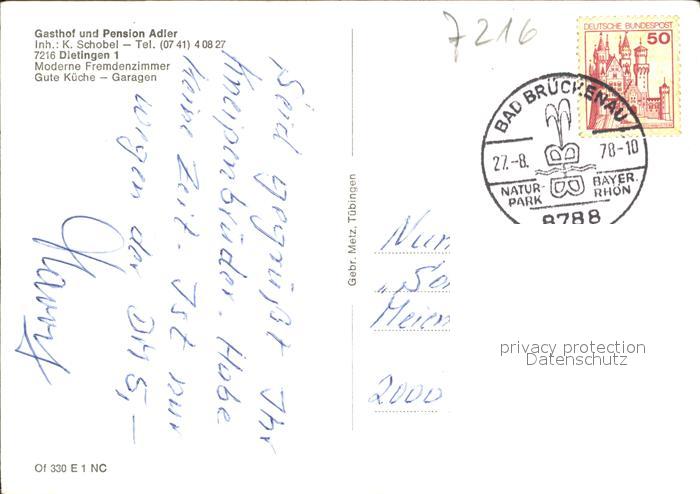 Gasthof und Pension Adler
Inh.: K. Schobel – Tel. (07 41) 4 08 27
7216 Dietingen 1
Moderne Fremdenzimmer
Gute Küche – Garagen
7216
DEUTSCHE BUNDESPOST
50
BAD BRÜCKENAU
27.-8. 78-10
NATUR-
PARK
BAYER.
RHÖN
8788
Seid gegrüßt Ihr
Kneipenbrüder. Habe
keine Zeit. Ist nur
wegen der DM 5,—
Harry
Gebr. Metz, Tübingen
Nur
"So
Meien
2000
privacy protection
Datenschutz
Of 330 E 1 NC